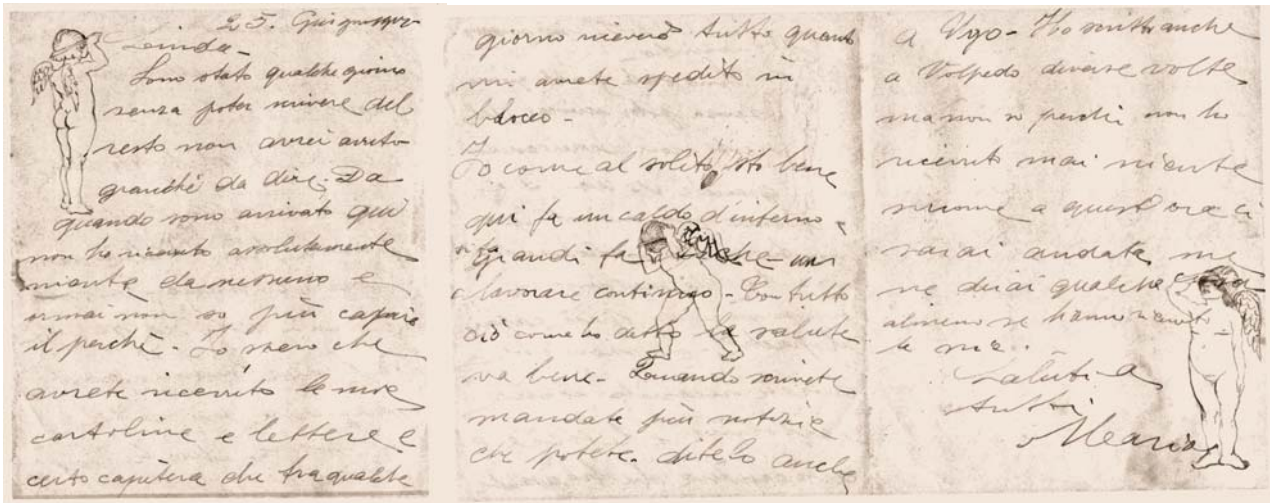 25.
Linda -
Sono stato qualche giorno
senza poter scrivere del
resto non avrei avuto
granchè da dire. Da
quando sono arrivato qui
non ho ricevuto assolutamente
niente da nessuno e
ormai non so più capire
il perchè. Io spero che
avrete ricevuto le mie
cartoline e lettere e
certo capiterà che tra qualche
giorno riceverò tutto quanto
mi avrete spedito in
blocco -
Io come al solito sto bene
qui fa un caldo d'inferno -
Grandi un
lavorare continuo - Con tutto
ciò come ho detto la salute
va bene - Quando scrivete
mandate più notizie
che potete. ditelo anche
a Ugo - Ho scritto anche
a Volpedo diverse volte
ma non so perchè non ho
ricevuto mai niente
siccome a quest'ora ci
sarai andata me
ne dirai qualche cosa
almeno se hanno ricevuto
le mie.
Saluti a
tutti
Mario